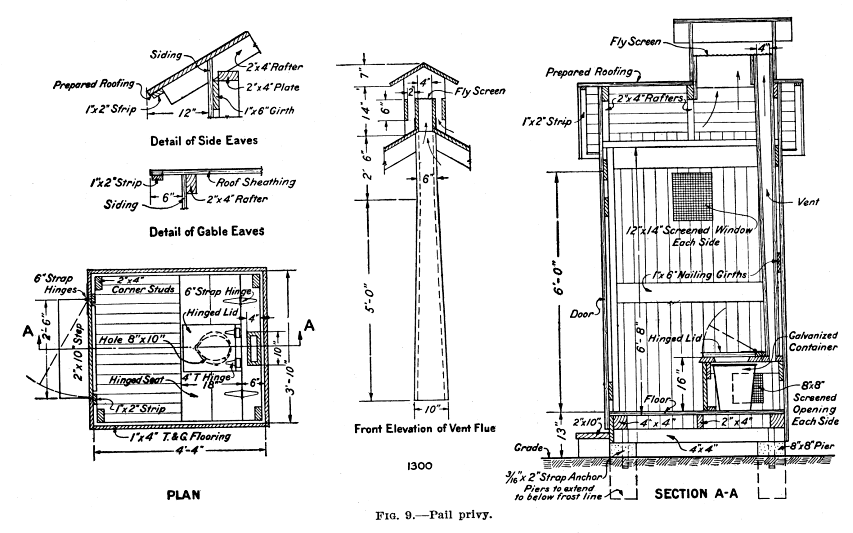 Siding
2"x4" Rafter
Prepared Roofing
2"x4" Plate
1"x2" Strip
12"
1"x6" Girth
Detail of Side Eaves
1"x2" Strip
6"
Roof Sheathing
Siding
2"x4" Rafter
Detail of Gable Eaves
6" Strap
Hinges
2"x4"
Corner Studs
6" Strap Hinge
Hinged Lid
4"
A
A
2'-6"
2"x10" Step
Hole 8"x10"
10"
3'-10"
4" T Hinge
Hinged Seat
18"
6"
1"x2" Strip
1"x4" T.&G. Flooring
4'-4"
PLAN
7"
4"
2"
Fly Screen
14"
6"
2' 6"
6"
5'-0"
10"
Front Elevation of Vent Flue
1300
Fly Screen
4"
Prepared Roofing
1"x2" Strip
2"x4" Rafters
Vent
12"x14" Screened Window
Each Side
6'-0"
1"x6" Nailing Girths
Door
6'-8"
Hinged Lid
Galvanized
Container
16"
8"x8"
Screened
Opening
Each Side
Floor
2"x10"
4"x4"
2"x4"
13"
Grade
4"x4"
8"x8" Pier
3/16"x2" Strap Anchor
Piers to extend
to below frost line
SECTION A-A
FIG. 9.—Pail privy.